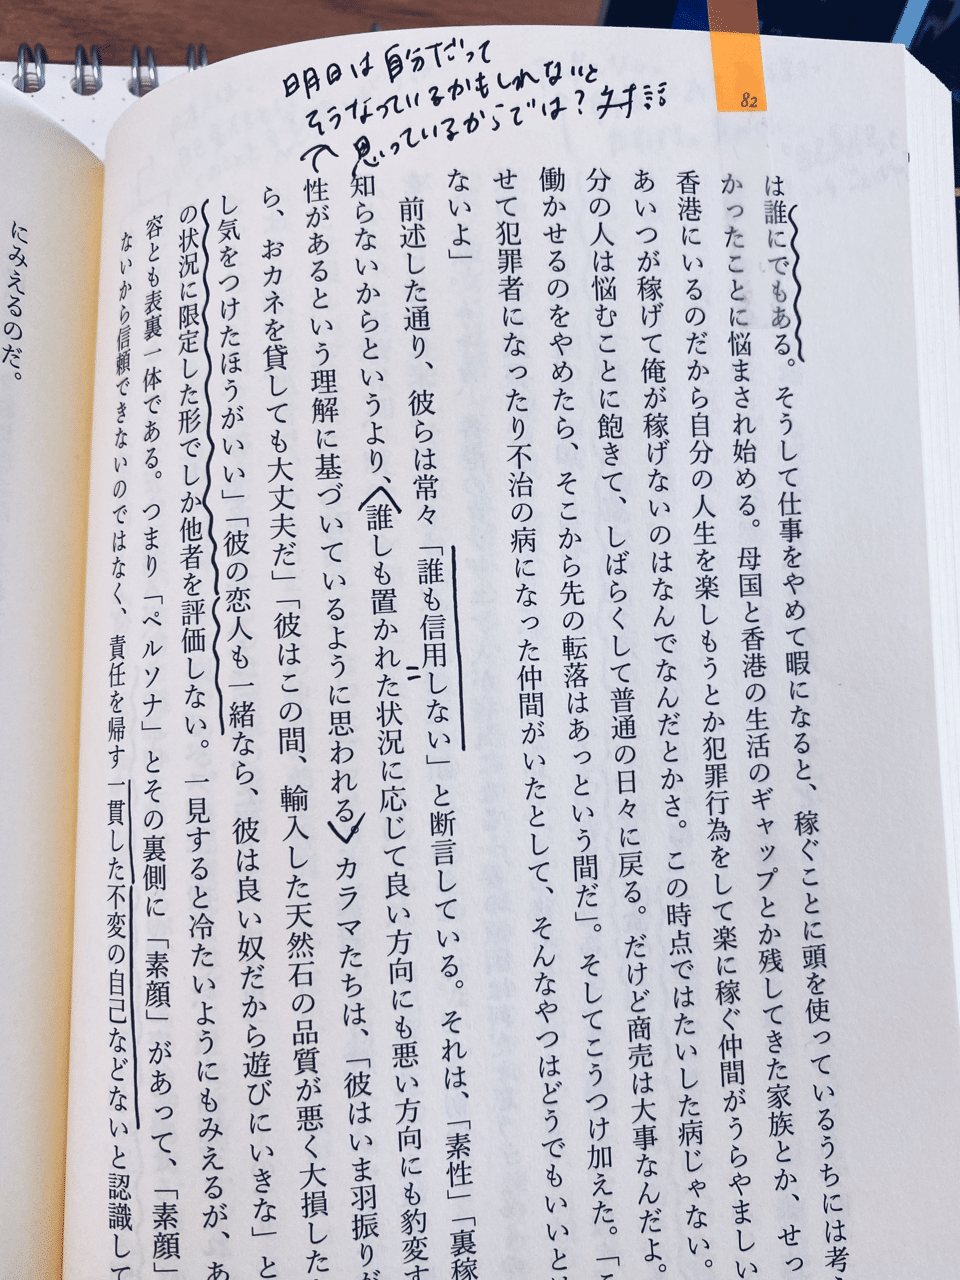 明日は自分だって
そうなっているかもしれないと
思っているからでは？ 対話
82
は誰にでもある。そうして仕事をやめて暇になると、稼ぐことに頭を使っているうちには考え
かったことに悩まされ始める。母国と香港の生活のギャップとか残してきた家族とか、せっ
香港にいるのだから自分の人生を楽しもうとか犯罪行為をして楽に稼ぐ仲間がうらやましい
あいつが稼げて俺が稼げないのはなんでなんだとかさ。この時点ではたいした病じゃない。
分の人は悩むことに飽きて、しばらくして普通の日々に戻る。だけど商売は大事なんだよ。
働かせるのをやめたら、そこから先の転落はあっという間だ」。そしてこうつけ加えた。「こ
せて犯罪者になったり不治の病になった仲間がいたとして、そんなやつはどうでもいいと
ないよ」
前述した通り、彼らは常々「誰も信用しない」と断言している。それは、「素性」「裏稼
知らないからというより、誰しも置かれた状況に応じて良い方向にも悪い方向にも豹変す
性があるという理解に基づいているように思われる。カラマたちは、「彼はいま羽振りが
ら、おカネを貸しても大丈夫だ」「彼はこの間、輸入した天然石の品質が悪く大損した
し気をつけたほうがいい」「彼の恋人も一緒なら、彼は良い奴だから遊びにいきな」と
の状況に限定した形でしか他者を評価しない。一見すると冷たいようにもみえるが、あ
容とも表裏一体である。つまり「ペルソナ」とその裏側に「素顔」があって、「素顔」
ないから信頼できないのではなく、責任を帰す一貫した不変の自己などないと認識して
にみえるのだ。